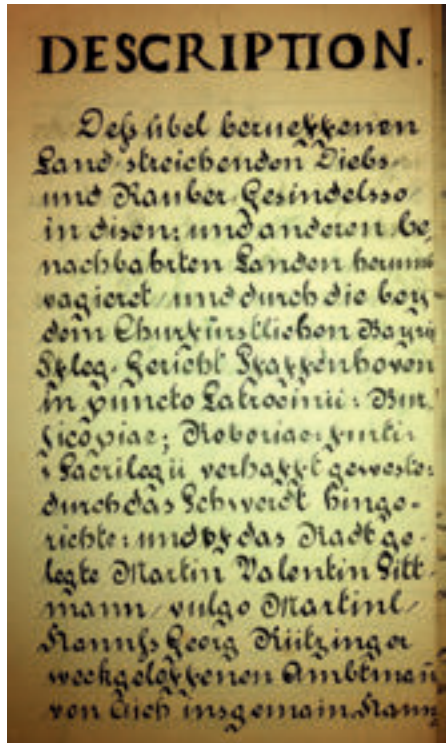 DESCRIPTION.
Deß übel berueffenen
Land-streichenden Diebs-
und Rauber-Gesindels so
in disen: und anderen be,
nachbahrten Landen herumb
vagieret / und durch die bey
dem Churfürstlichen Bayri
Pfleg-Gericht Pfaffenhoven
in puncto Latrocinii: Bur,
sicopiae; Roboriae: furti:
& Sacrilegii verhafft geweste:
durch das Schwerdt hinge-
richte: und auf das Radt ge-
legte Martin Valentin Pitt-
mann / vulgo Martinl /
Hannß Georg Rützinger
weckgeloffenen Ambtmañ
von Aich insgemain Hann